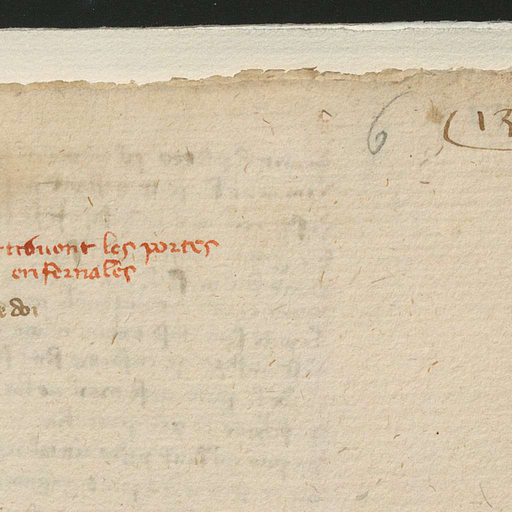 6 (13
trouvent les portes
enfernales
e doi